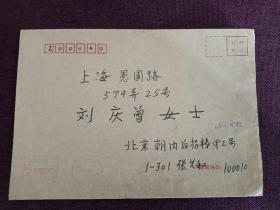 200040
上海 恩园路
579弄25号
刘庆曾 女士
北京朝内后拐棒甲2号
1-301 张
100010